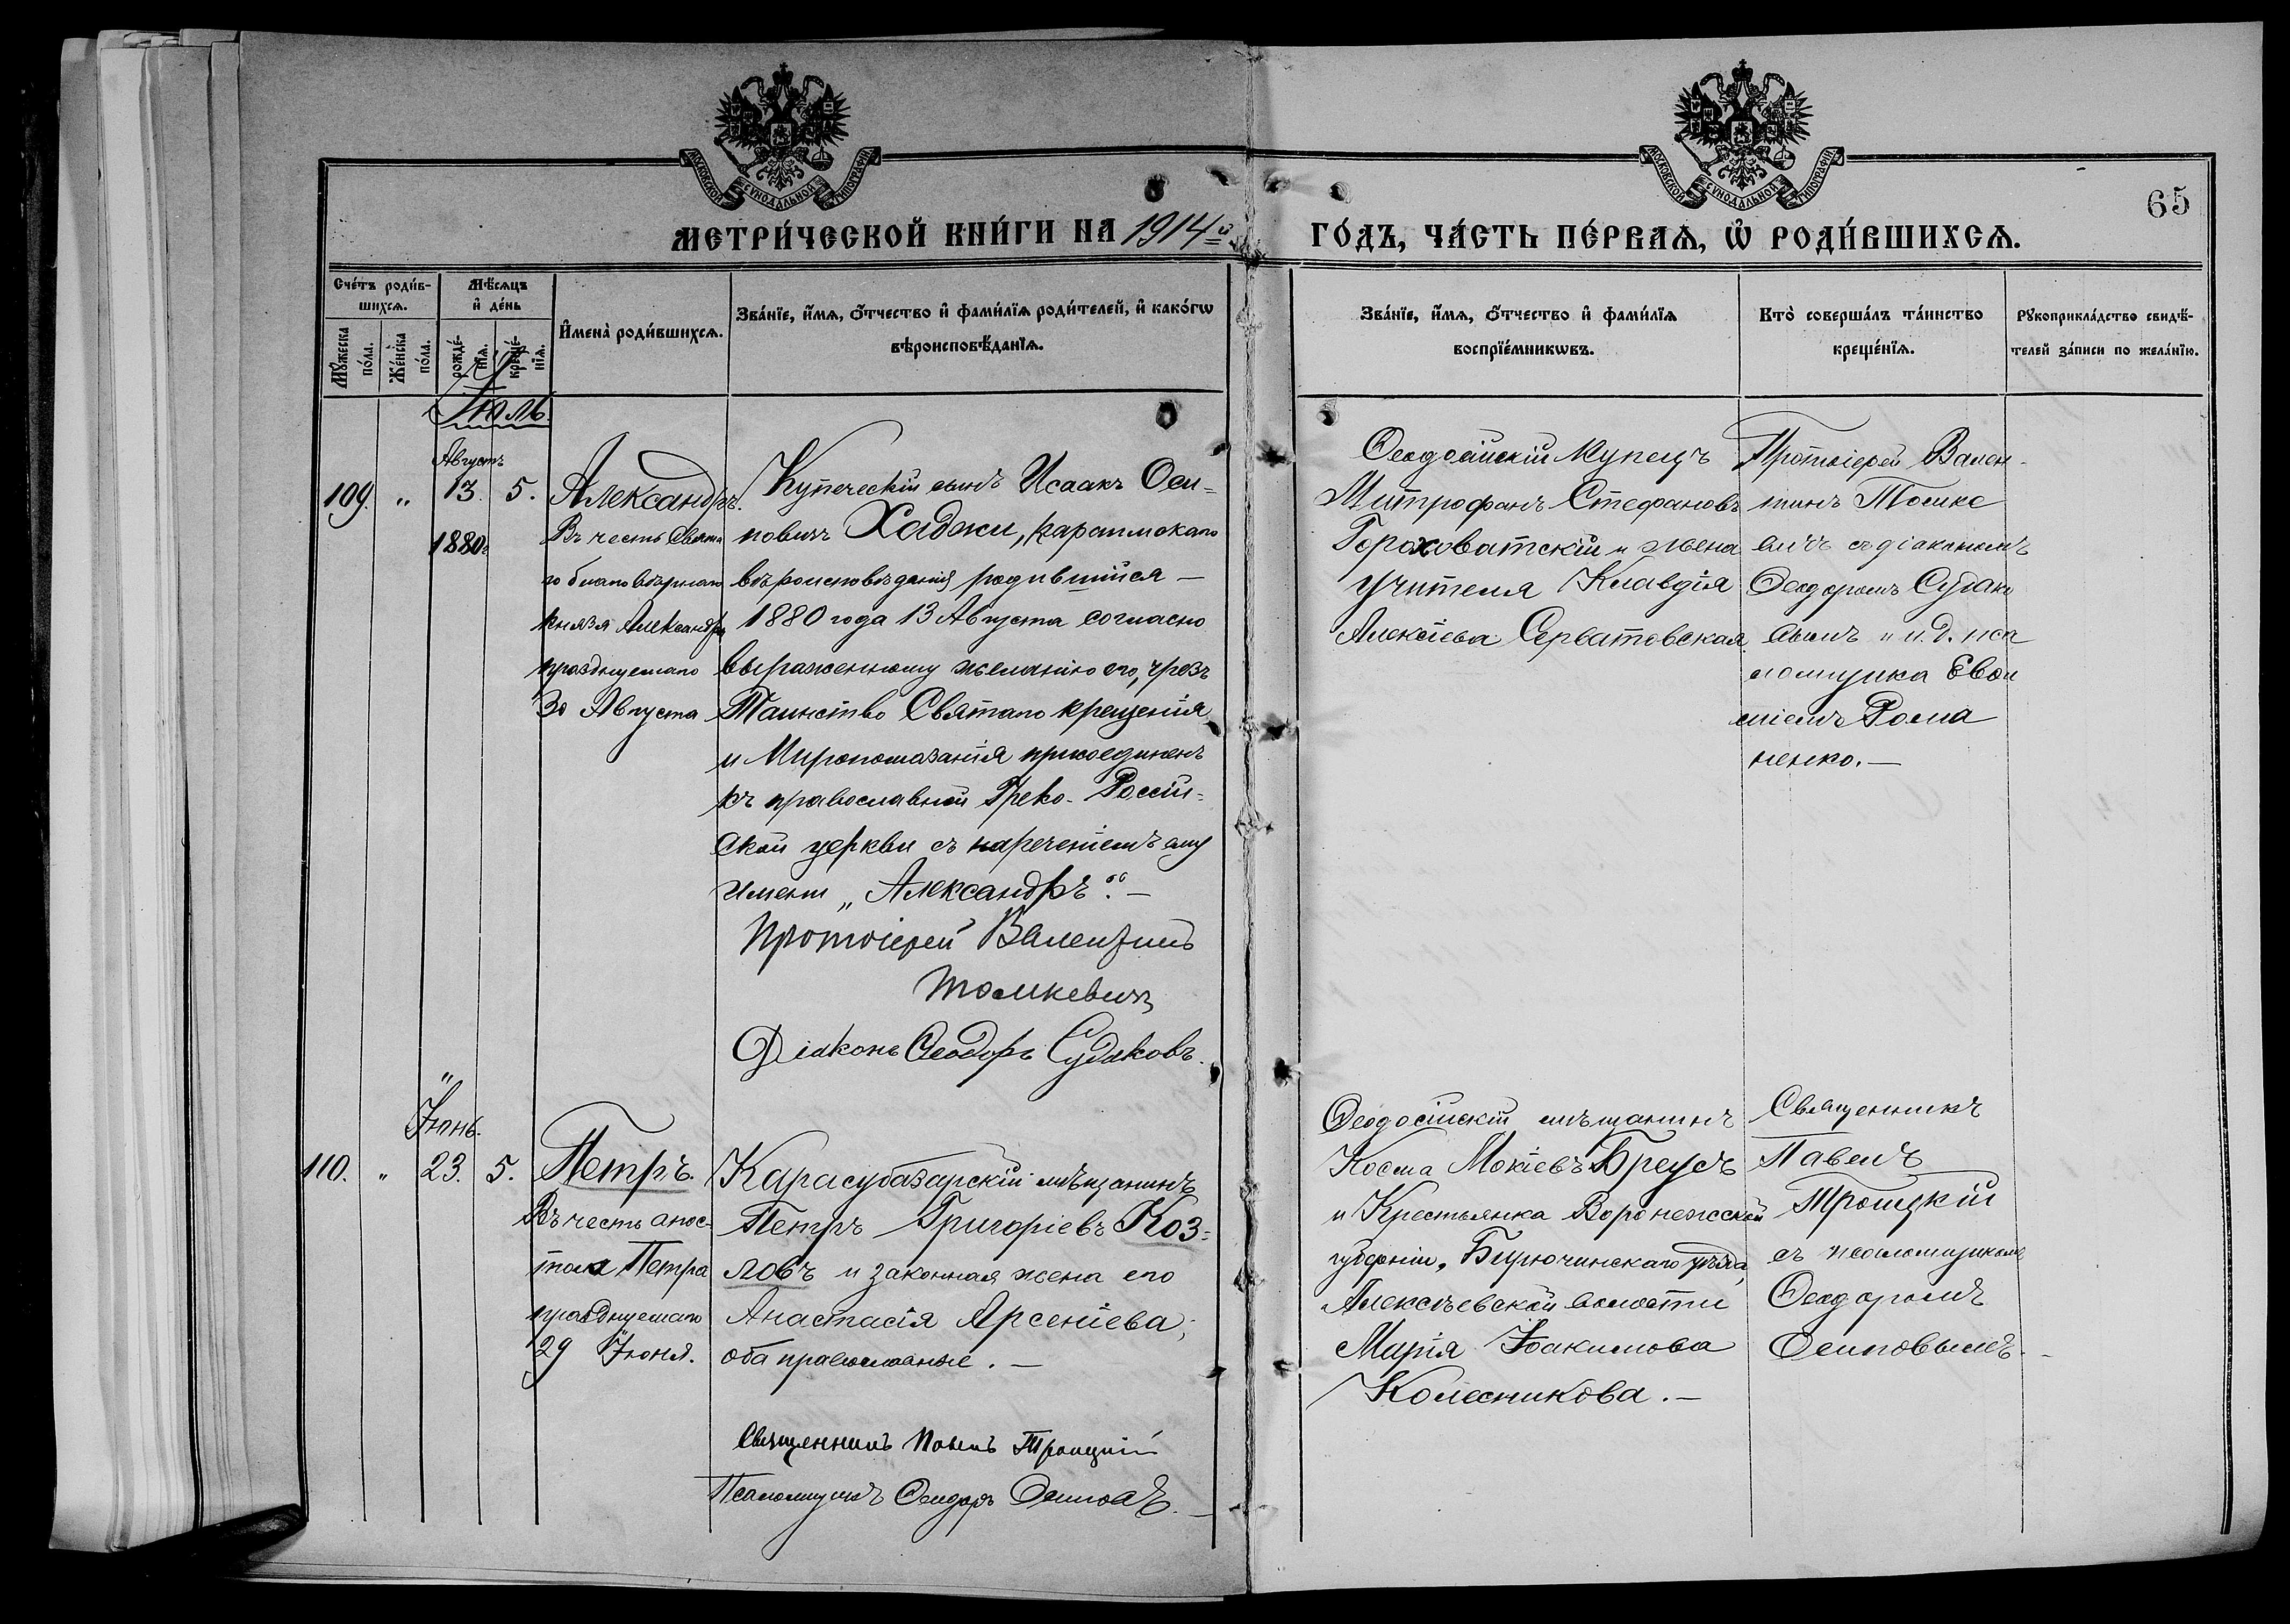 МОСКОВСКОЙ СѴНОДАЛЬНОЙ ТИПОГРАФІИ
МОСКОВСКОЙ СѴНОДАЛЬНОЙ ТИПОГРАФІИ
65
МЕТРИ́ЧЕСКОЙ КНИ́ГИ НА 1914й
ГО́ДЪ, ЧА́СТЬ ПЕ́РВАѦ, Ѡ҆ РОДИ́ВШИХСѦ.
Сче́тъ роди́в-
шихсѧ.
Мѣ́сѧцъ
и҆ де́нь
Мꙋ́жеска по́ла.
Же́нска по́ла.
рожде́-
нїѧ.
креще́-
нїѧ.
И҆мена̀ роди́вшихсѧ.
Зва́нїе, и҆́мѧ, ѻ҆́тчество и҆ фами́лїѧ роди́телей, и҆ како́гѡ
вѣроисповѣ́данїѧ.
Зва́нїе, и҆́мѧ, ѻ҆́тчество и҆ фами́лїѧ
воспрїе́мникѡвъ.
Кто̀ соверша́лъ та́инство
креще́нїѧ.
Рꙋкоприкла́дство свидѣ́-
телей за́писи по жела́нїю.
Іюль.
Августъ
109. „ 13. 5.
1880г.
Александръ.
Въ честь Свята
го благовѣрнаго
князя Александра
празднуемаго
30 Августа
Купеческій сынъ Исаакъ Оси=
повичъ Хаджи, караимскаго
вѣроисповѣданія родившійся —
1880 года 13 Августа согласно
выраженному желанію его, чрезъ
Таинство Святаго крещенія
и Миропомазанія присоединенъ
къ православной Греко-Россій=
ской церкви съ нареченіемъ ему
имени „Александръ“. —
Протоіерей Валентинъ
Томкевичъ
Діаконъ Ѳеодоръ Судаковъ.
Ѳеодосійскій купецъ
Митрофанъ Стефановъ
Гороховатскій и жена
учителя Клавдія
Алексіева Серватовская
Протоіерей Вален-
тинъ Томке
вичъ съ діакономъ
Ѳеодоромъ Судако
вымъ и и.д. пса
ломщика Евѳи
міемъ Рома
ненко. —
„
Іюнь.
110. „ 23. 5.
Петръ.
Въ честь апос-
тола Петра
празднуемаго
29 Іюня.
Карасубазарскій мѣщанинъ
Петръ Григоріевъ Коз=
ловъ и законная жена его
Анастасія Арсеніева;
оба православные. —
Священникъ Павелъ Троицкій
Псаломщикъ Ѳеодоръ Осиповъ. —
Ѳеодосійскій мѣщанинъ
Косма Мокіевъ Бреусъ
и Крестьянка Воронежской
губерніи, Бирюченскаго уѣзда,
Алексѣевской волости
Марія Іоакимова
Колесникова. —
Священникъ
Павелъ
Троицкій
съ псаломщикомъ
Ѳеодоромъ
Осиповымъ. —